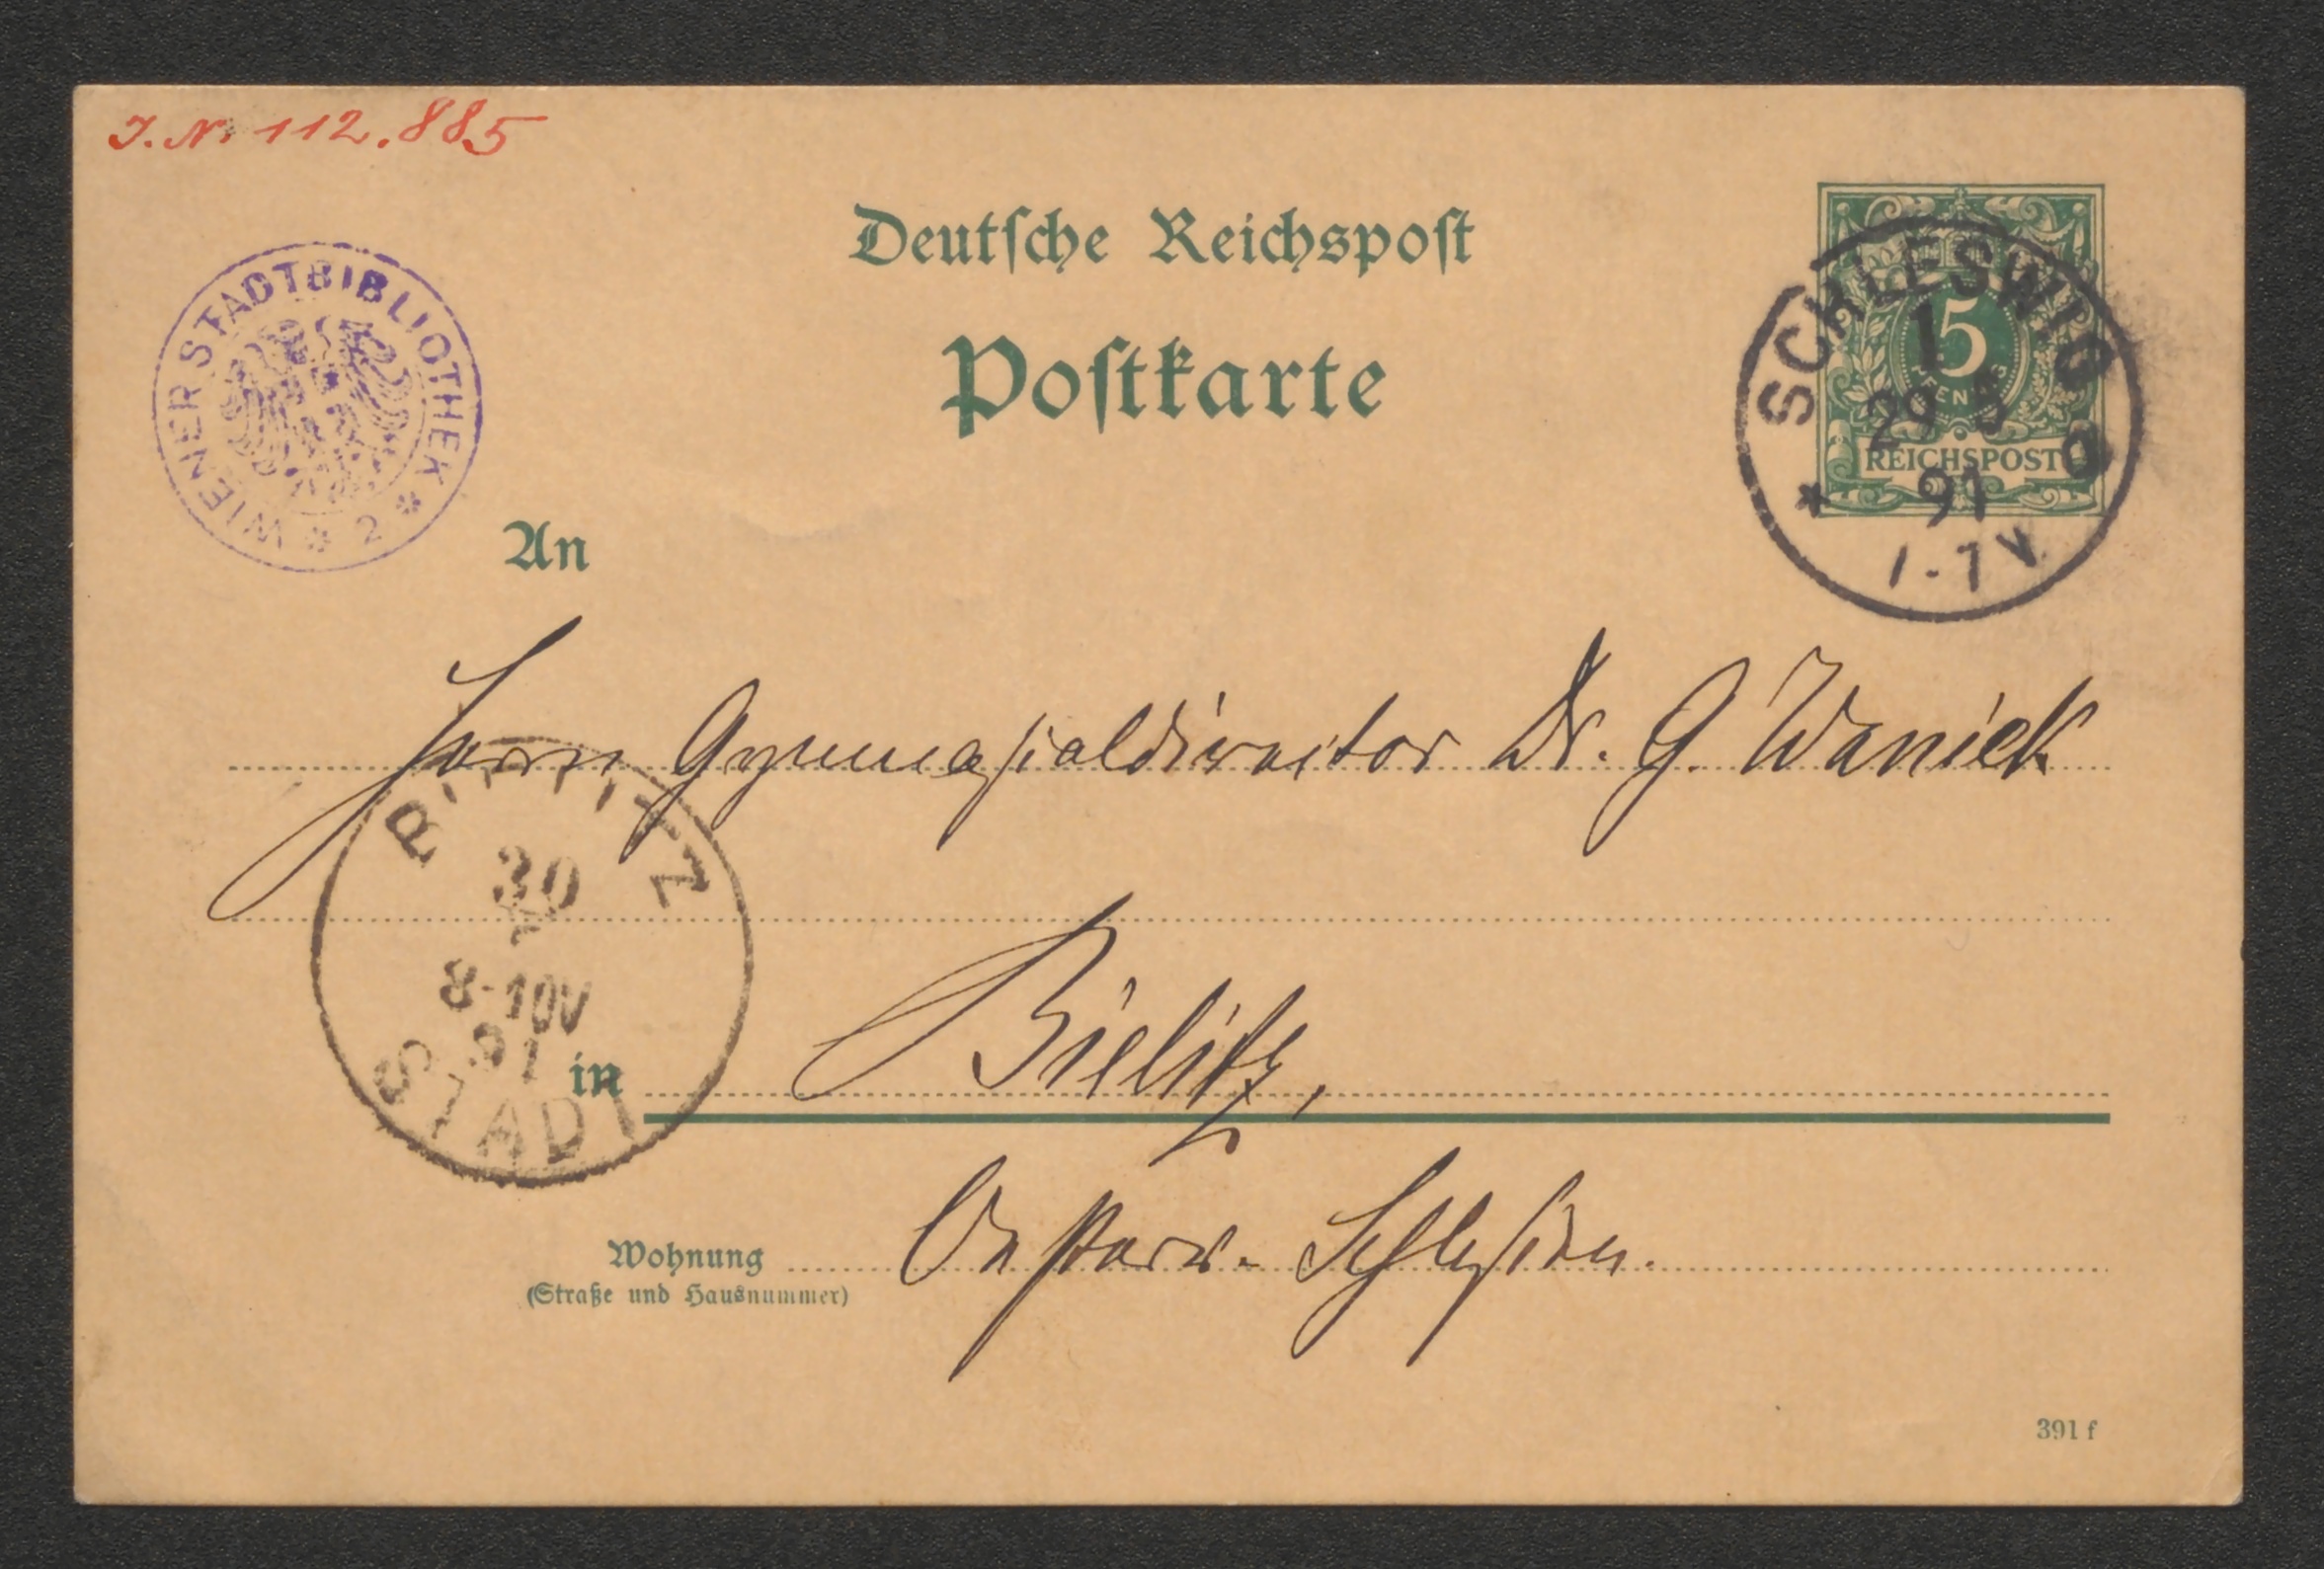 J. N. 112.885
Deutsche Reichspost
Postkarte
WIENER STADTBIBLIOTHEK * 2 *
5
REICHSPOST
SCHLESWIG
1
29 5
91
An
Herrn Gymnasialdirector Dr. G. Waniek
30
8-10V
91
STADT
in Bielitz,
Wohnung Oesterr. Schlesien.
(Straße und Hausnummer)
391 f